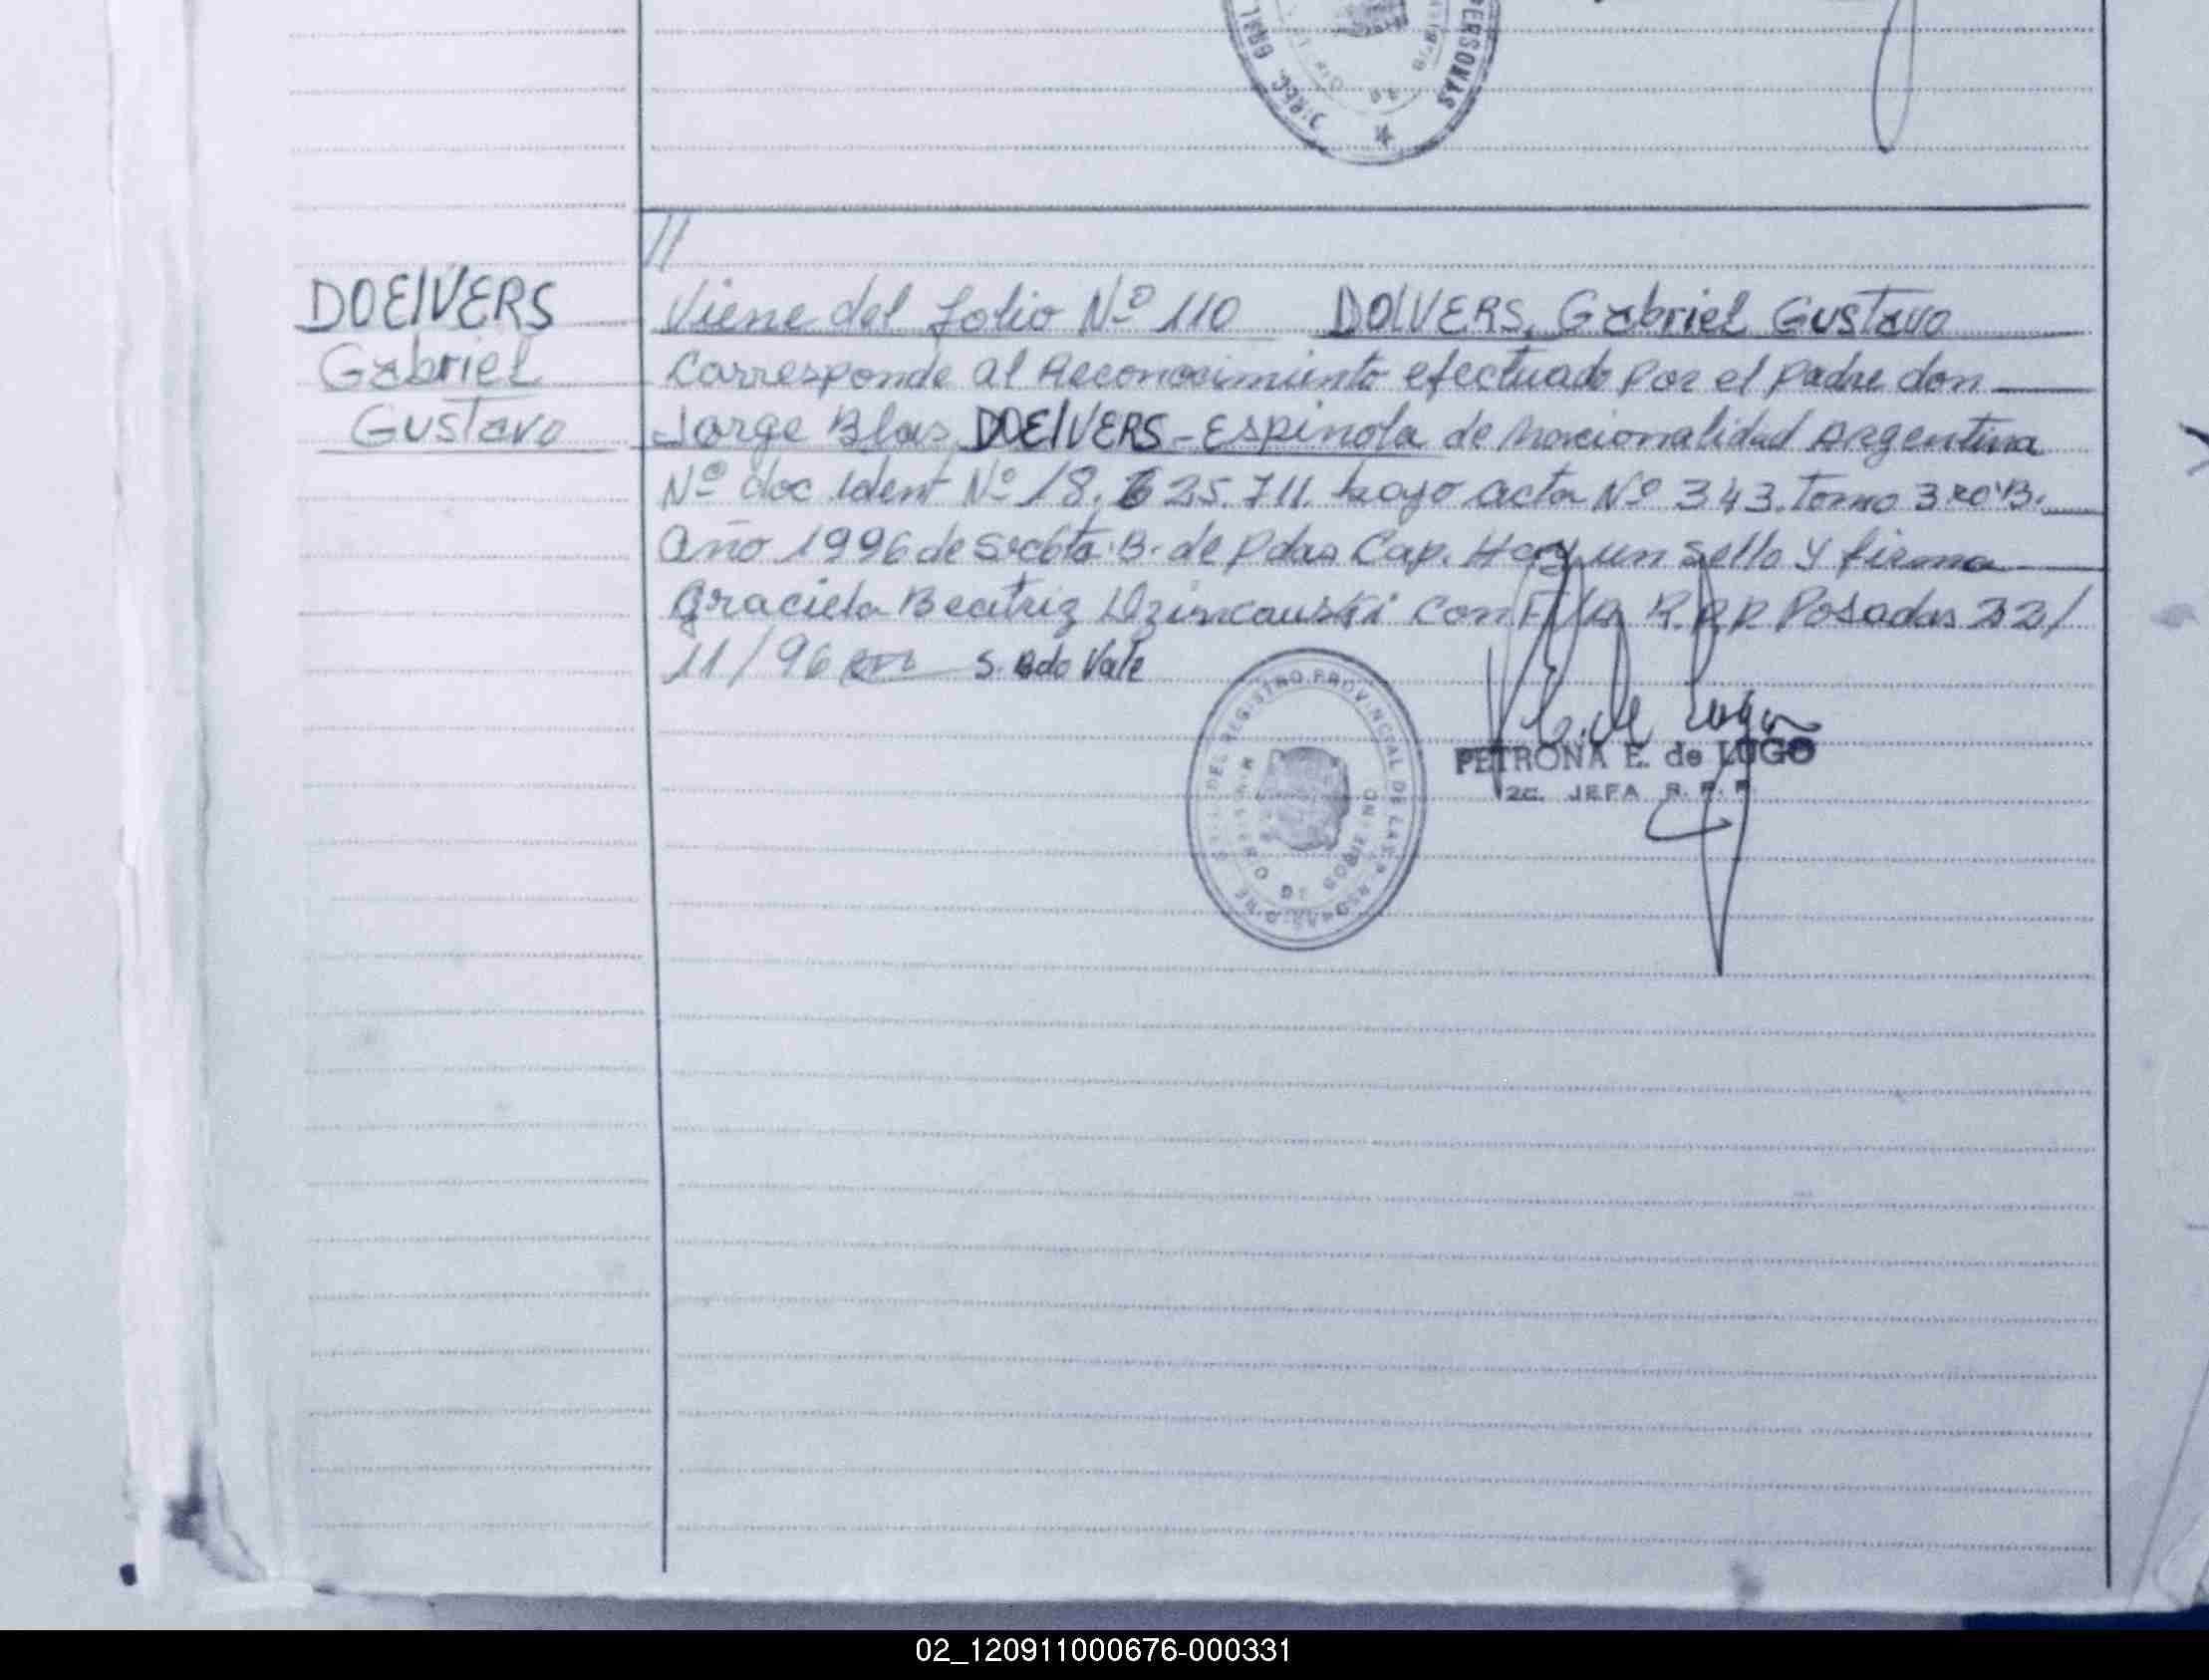 PERSONAS
DE
//
DOEIVERS
Gabriel
Gustavo
Viene del folio Nº 110 DOIVERS, Gabriel Gustavo
Corresponde al Reconocimiento efectuado por el padre don
Jorge Blas, DOEIVERS-Espinola de Nacionalidad Argentina
Nº doc ident Nº 18.625.711. bajo acta Nº 343. Tomo 3ro B.
año 1996 de Seccta. B. de Pdas Cap. Hay un sello y firma
Graciela Beatriz Dzincauski Con F/Q R.P.P. Posadas 22/
11/96 S. Bdo Vale
DEL REGISTRO PROVINCIAL DE LAS PERSONAS
E. de Lugo
PETRONA E. de LUGO
2a. JEFA R. P. P.
02_120911000676-000331